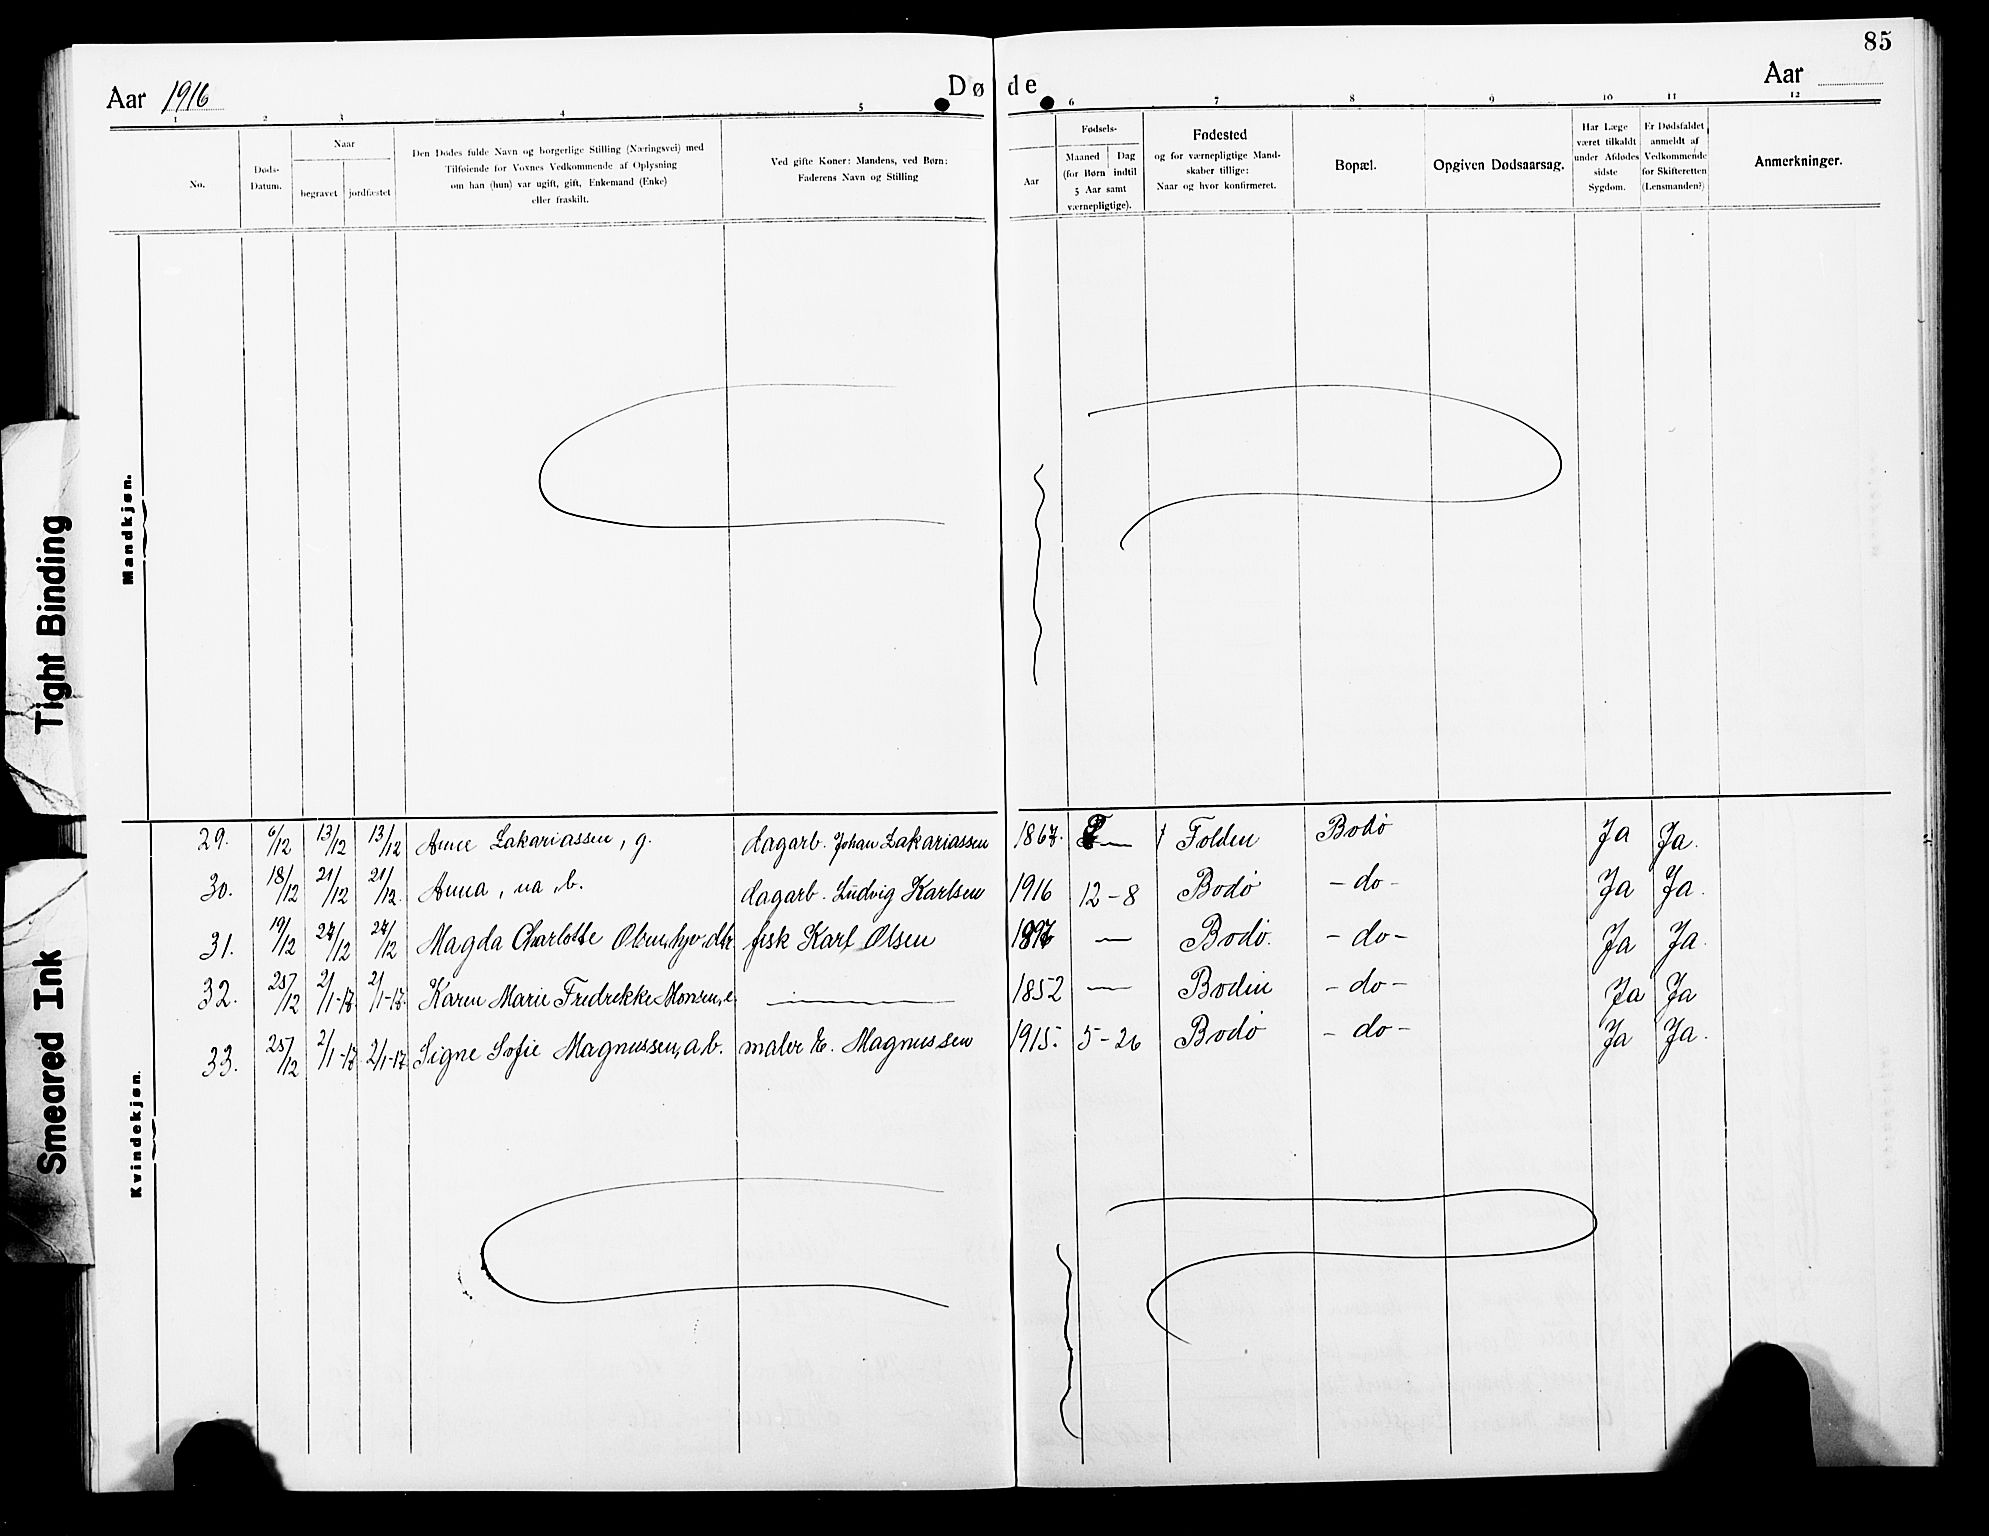 85
Aar 1916
Døde
Aar
1 2 3 4 5 6 7 8 9 10 11 12
No.
Døds-
Datum.
Naar
begravet jordfæstet
Den Dødes fulde Navn og borgerlige Stilling (Næringsvei) med
Tilføiende for Voxnes Vedkommende af Oplysning
om han (hun) var ugift, gift, Enkemand (Enke)
eller fraskilt.
Ved gifte Koner: Mandens, ved Børn:
Faderens Navn og Stilling
Aar
Fødsels-
Maaned Dag
(for Børn indtil
5 Aar samt
værnepligtige).
Fødested
og for værnepligtige Mand-
skaber tillige:
Naar og hvor konfirmeret.
Bopæl.
Opgiven Dødsaarsag.
Har Læge
været tilkaldt
under Afdødes
sidste
Sygdom.
Er Dødsfaldet
anmeldt af
Vedkommende
for Skifteretten
(Lensmanden?)
Anmerkninger.
Mandkjøn.
Kvindekjøn.
29. 6/12 13/12 13/12 Anne Zakariassen, g. dagarb. Johan Zakariassen — Folden Bodø Ja Ja.
30. 18/12 21/12 21/12. Anna, ua, b. dagarb. Ludvig Karlsen 1916 12-8 Bodø -do- Ja Ja.
31. 19/12 27/12 27/12 Magda Charlotte Olsen, hjv. dtr. fisk Karl Olsen — Bodø. -do- Ja Ja.
32. 25/12 2/1-17. 2/1-17. Karen Marie Fredrekke Monsen, e. — 1852 — Bodin -do- Ja Ja
33. 25/12 2/1-17 2/1-17 Signe Sofie Magnussen, a. b. maler E. Magnussen 1915. 5-26 Bodø -do- Ja Ja.
Tight Binding
Smeared Ink